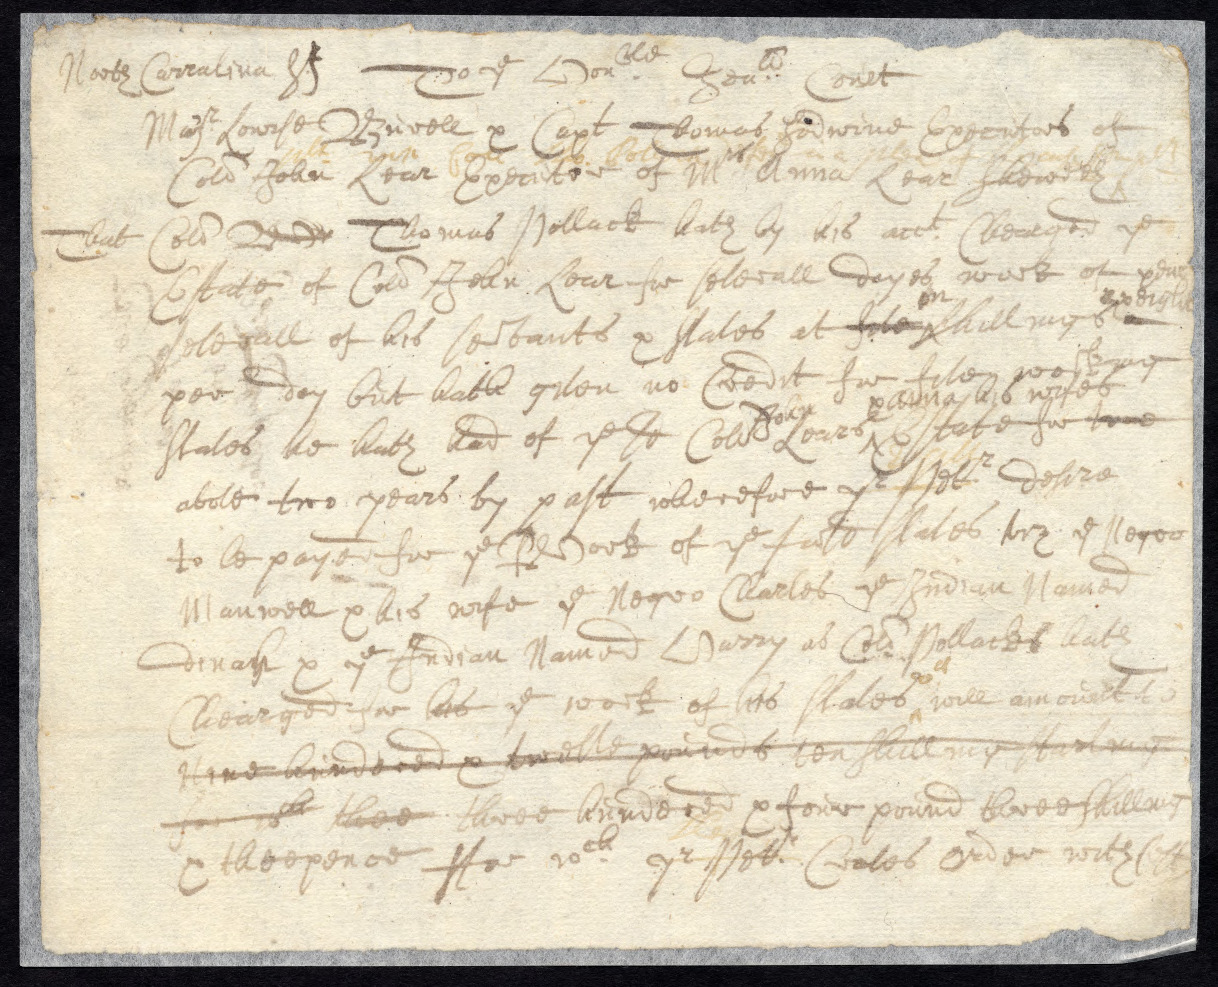 North Carralina Ss To ye Honble Genll Court
Majr Lewese Burwell & Capt Thomas Godwine Executors of
Colo John Lear Executor of Mrs Anna Lear Sheweth
That Colo Thomas Pollack hath by his acct Chearged ye
Estate of Colo John Lear for severall dayes work of
severall of his servants & slaves at shillings
per day but hath given no Credit for working
slaves he hath had of ye sd Colo John Lears & anna his wifes Estate for
above two years by past wherefore yr Petr desire
to be payed for ye Work of ye said slaves viz ye Negro
Manuell & his wife ye Negro Charles ye Indian Named
dinah & ye Indian Named Harry as Colo Pollacks hath
Chearged for his ye work of his slaves will amount to
Nine hundered & twelve pounds ten shilling starling
for wch thee three hundered & foure pound three shilling
& theepence Ffor wch yr Petr Craves order with Cost